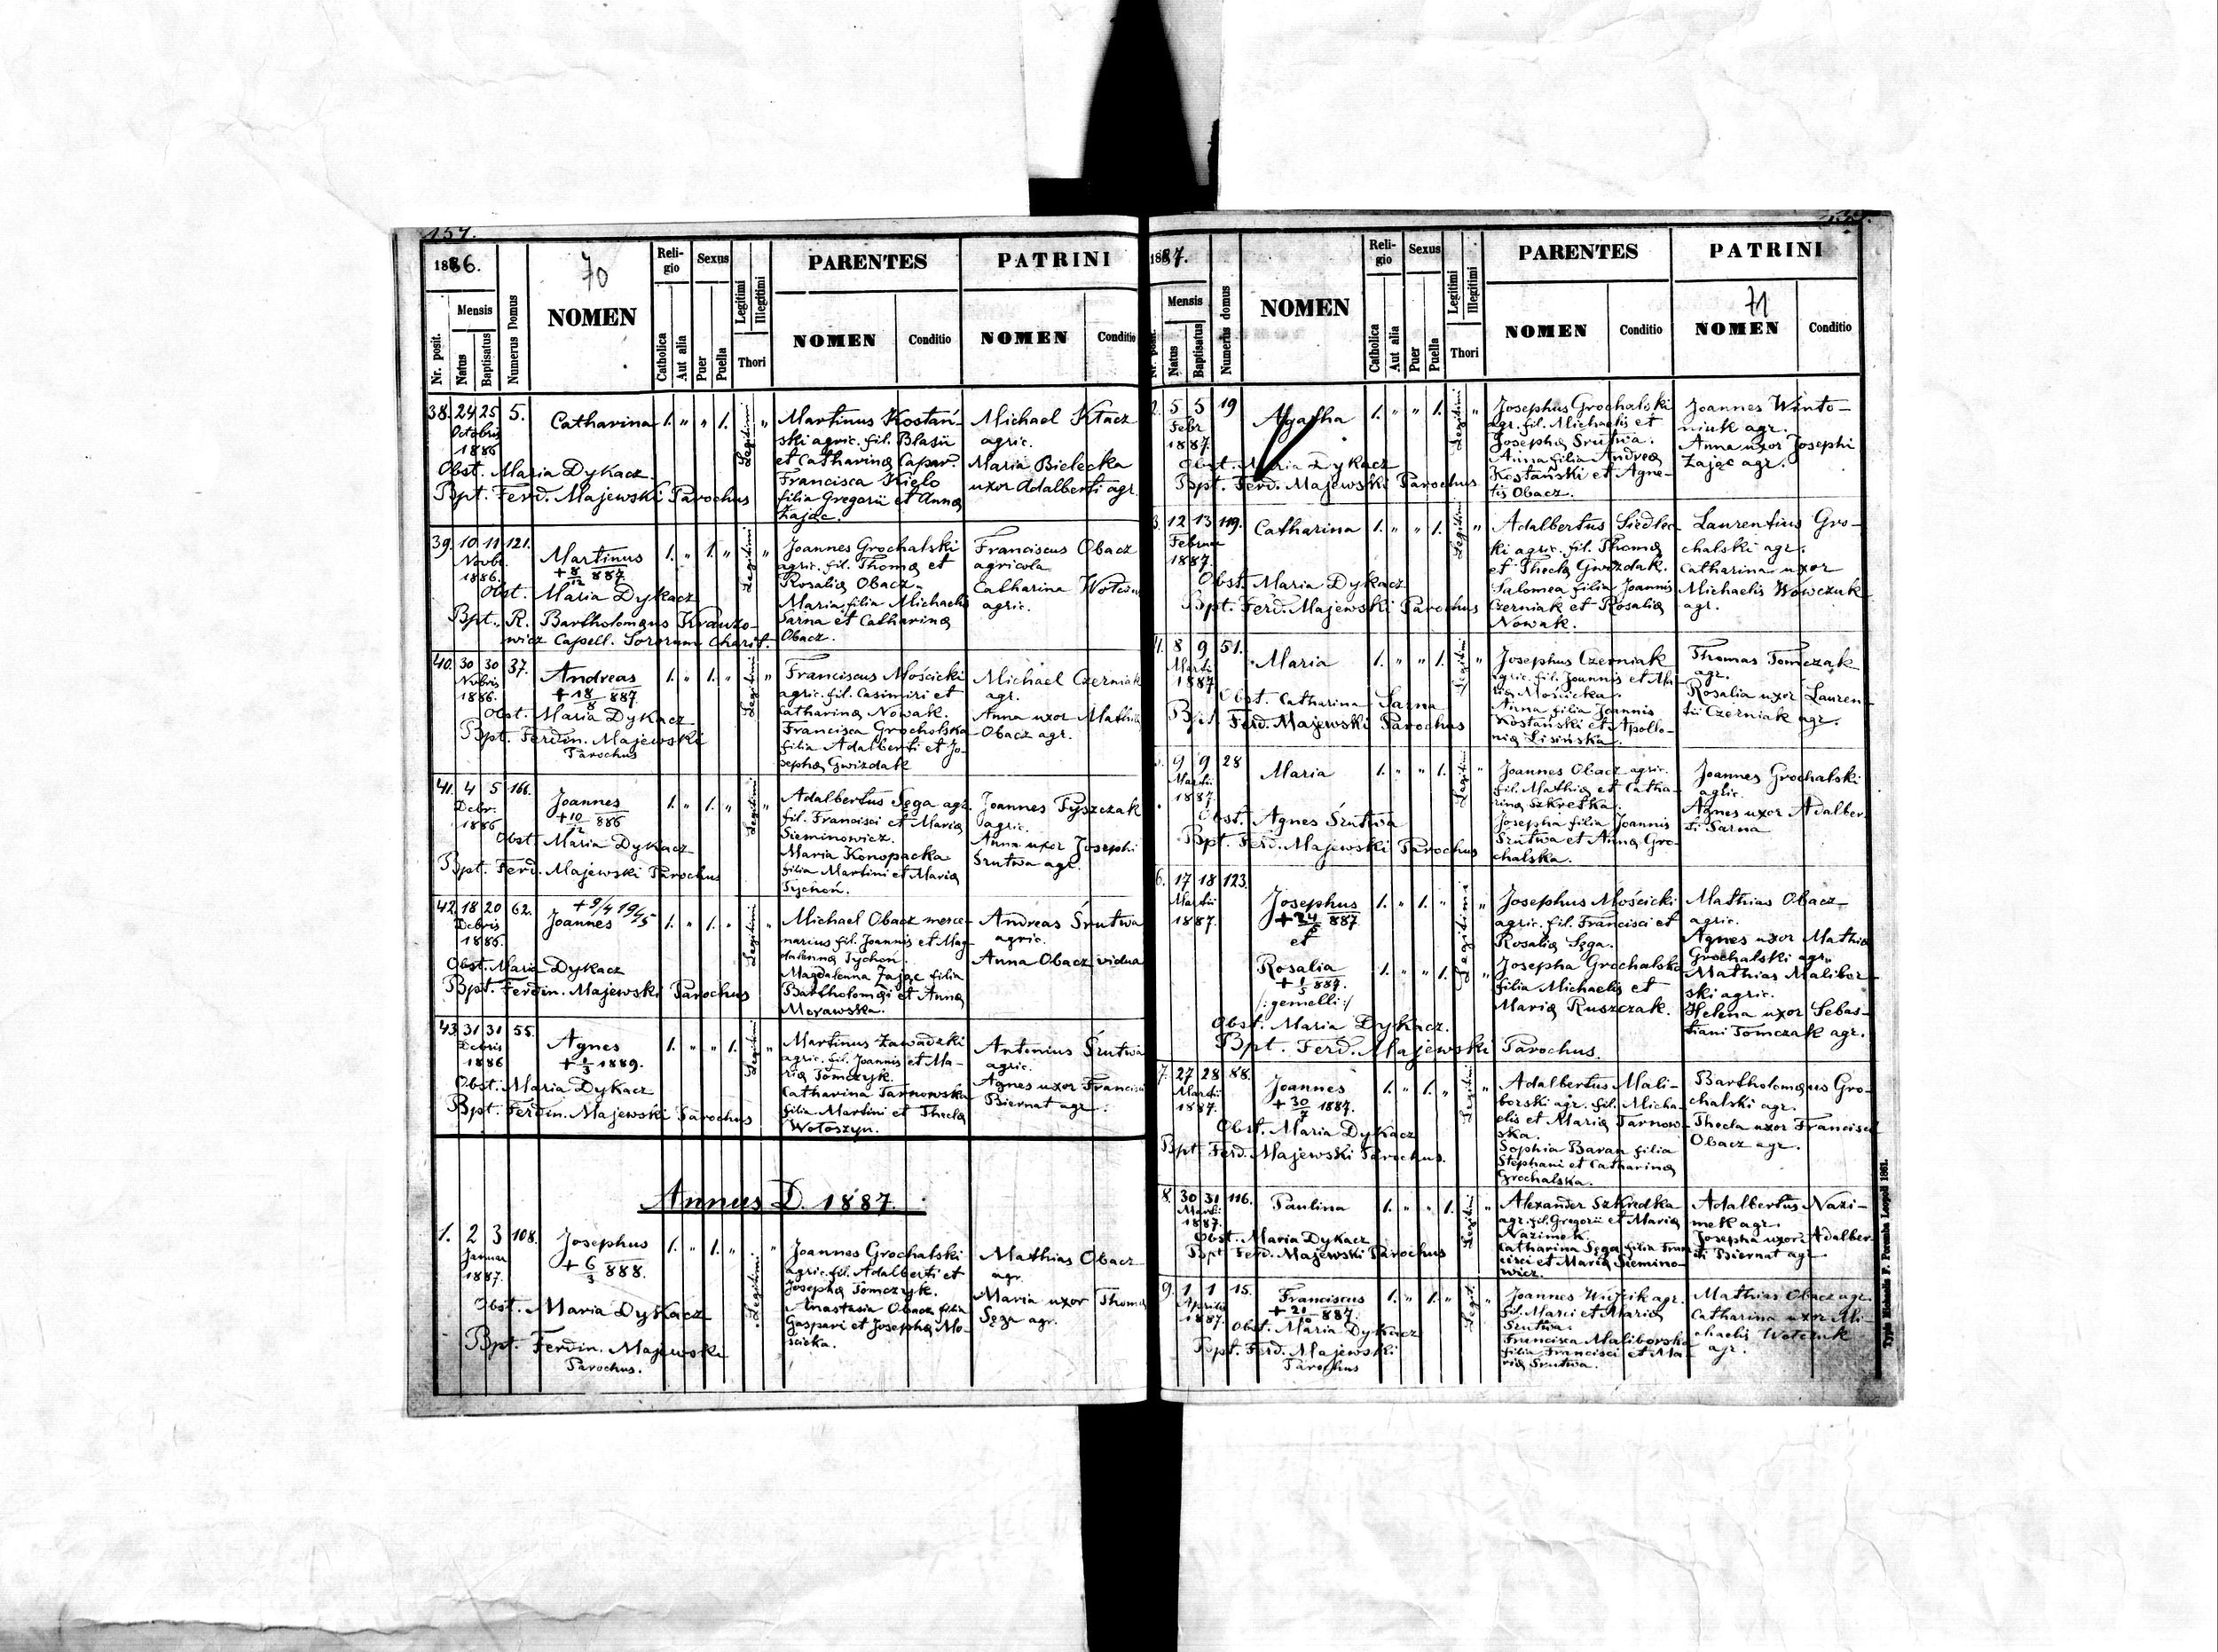 157.
1886.
70
Mensis
Nr. posit.
Natus
Baptisatus
Numerus Domus
NOMEN
Religio
Catholica
Aut alia
Sexus
Puer
Puella
Legitimi
Illegitimi
Thori
PARENTES
NOMEN
Conditio
PATRINI
NOMEN
Conditio
38. 24 25 5. Catharina 1. " " 1. Legitimi "
Octobris
1886
Obst. Maria Dykacz
Bpt. Ferd. Majewski Parochus
Martinus Kostań-
ski agric. fil. Blasii
et Catharina Capar.
Francisca Kielo
filia Gregorii et Anna
Zając.
Michael Kłacz
agric.
Maria Bielecka
uxor Adalberti agr.
39. 10 11 121. Martinus 1. " 1. " Legitimi "
Novbr.
1886.
+ 8/12 887
Obst. Maria Dykacz
Bpt. R. Bartholomæus Krauzo-
wicz Capell. Sororum Charit.
Joannes Grochalski
agric. fil. Thomæ et
Rosaliæ Obacz.
Maria filia Michaelis
Sarna et Catharinæ
Obacz.
Franciscus Obacz
agricola
Catharina
agric.
40. 30 30 37. Andreas 1. " 1. " Legitimi "
Novbris
1886.
+ 18/8 887.
Obst. Maria Dykacz
Bpt. Ferdin. Majewski
Parochus
Franciscus Mościcki
agric. fil. Casimiri et
Catharinæ Nowak.
Francisca Grocholska
filia Adalberti et Jo-
sephæ Gwizdak
Michael Czerniak
agr.
Anna uxor Mathiæ
Obacz agr.
41. 4 5 166. Joannes 1. " 1. " Legitimi "
Debr.
1886
+ 10/12 886
Obst. Maria Dykacz
Bpt. Ferd. Majewski Parochus
Adalbertus Sęga agr.
fil. Francisci et Mariæ
Sieminowicz.
Maria Konopacka
filia Martini et Mariæ
Tychoń.
Joannes Tyszczak
agric.
Anna uxor Josephi
Śrutwa agr.
42. 18 20 62. + 9/4 1945
Joannes 1. " 1. " Legitimi "
Debris
1886.
Obst. Maria Dykacz
Bpt. Ferdin. Majewski Parochus
Michael Obacz merce-
narius fil. Joannis et Mag-
dalenæ Tychoń.
Magdalenna Zając filia
Bartholomæi et Annæ
Morawska.
Andreas Śrutwa
agric.
Anna Obacz vidua
43. 31 31 55. Agnes 1. " " 1. Legitimi "
Debris
1886
+ 1/3 1889.
Obst. Maria Dykacz
Bpt. Ferdin. Majewski Parochus
Martinus Zawadzki
agric. fil. Joannis et Ma-
riæ Tomczyk.
Catharina Tarnowska
filia Martini et Theclæ
Wołoszyn.
Antonius Śrutwa
agric.
Agnes uxor Francisci
Biernat agr.
Annus D. 1887.
1. 2 3 108. Josephus 1. " 1. " Legitimi "
Januar
1887.
+ 6/3 888.
Obst. Maria Dykacz
Bpt. Ferdin. Majewski
Parochus.
Joannes Grochalski
agric. fil. Adalberti et
Josephæ Tomczyk.
Anastasia Obacz filia
Gaspari et Josephæ Mo-
ścicka.
Mathias Obacz
agr.
Maria uxor Thomæ
Sęga agr.
1887.
71
Mensis
Nr. posit.
Natus
Baptisatus
Numerus domus
NOMEN
Religio
Catholica
Aut alia
Sexus
Puer
Puella
Legitimi
Illegitimi
Thori
PARENTES
NOMEN
Conditio
PATRINI
NOMEN
Conditio
2. 5 5 19 Agatha 1. " " 1. Legitimi "
Febr
1887.
Obst. Maria Dykacz
Bpt. Ferd. Majewski Parochus
Josephus Grochalski
agr. fil. Michaelis et
Josephæ Śrutwa.
Anna filia Andreæ
Kostański et Agne-
tis Obacz.
Joannes Winto-
niuk agr.
Anna uxor Josephi
Zając agr.
3. 12 13 119. Catharina 1. " " 1. Legitimi "
Februar
1887.
Obst. Maria Dykacz
Bpt. Ferd. Majewski Parochus
Adalbertus Siedlec-
ki agric. fil. Thomæ
et Theclæ Gwizdak.
Salomea filia Joannis
Czerniak et Rosaliæ
Nowak.
Laurentius Gro-
chalski agr.
Catharina uxor
Michaelis Wowczuk
agr.
4. 8 9 51. Maria 1. " " 1. Legitimi "
Martii
1887
Obst. Catharina Sarna
Bpt. Ferd. Majewski Parochus
Josephus Czerniak
agric. fil. Joannis et Ma-
riæ Mościcka.
Anna filia Joannis
Kostański et Apollo-
niæ Lisińska.
Thomas Tomczak
agr.
Rosalia uxor Lauren-
tii Czerniak agr.
5. 9 9 28 Maria 1. " " 1. Legitimi "
Martii
1887
Obst. Agnes Śrutwa
Bpt. Ferd. Majewski Parochus
Joannes Obacz agric.
fil. Mathiæ et Catha-
rinæ Szkretka.
Josepha filia Joannis
Śrutwa et Annæ Gro-
chalska.
Joannes Grochalski
agric.
Agnes uxor Adalber-
ti Sarna
6. 17 18 123. Josephus 1. " 1. " Legitimi "
Martii
1887.
+ 24/5 887
et
Rosalia 1. " " 1. "
+ 1/5 887.
/:gemelli:/
Obst. Maria Dykacz.
Bpt. Ferd. Majewski Parochus.
Josephus Mościcki
agric. fil. Francisci et
Rosaliæ Sęga.
Josepha Grochalska
filia Michaelis et
Mariæ Ruszczak.
Mathias Obacz
agric.
Agnes uxor Mathiæ
Grochalski agr.
Mathias Malibor-
ski agric.
Helena uxor Sebas-
tiani Tomczak agr.
7. 27 28 88. Joannes 1. " 1. " Legitimi "
Martii
1887.
+ 30/7 1887.
Obst. Maria Dykacz
Bpt. Ferd. Majewski Parochus.
Adalbertus Mali-
borski agr. fil. Micha-
elis et Mariæ Tarnow-
ska.
Sophia Baran filia
Stephani et Catharinæ
Grochalska.
Bartholomæus Gro-
chalski agr.
Thecla uxor Francisci
Obacz agr.
8. 30 31 116. Paulina 1. " " 1. Legitimi "
Martii
1887.
Obst. Maria Dykacz
Bpt. Ferd. Majewski Parochus
Alexander Szkredka
agr. fil. Gregorii et Mariæ
Nazimek
Catharina Sęga filia Fran-
cisci et Mariæ Siemino-
wicz.
Adalbertus Nazi-
mek agr.
Josepha uxor Adalber-
ti Biernat agr.
9. 1 1 15. Franciscus 1. " 1. " Legit. "
Aprilis
1887.
+ 21/10 887
Obst. Maria Dykacz
Bpt. Ferd. Majewski
Parochus
Joannes Wujcik agr.
fil. Marci et Mariæ
Śrutwa.
Francisca Maliborska
filia Francisci et Ma-
riæ Śrutwa.
Mathias Obacz agr.
Catharina uxor Mi-
chaelis Wołczuk
agr.
Typis Michaelis F. Poremba Leopoli 1861.